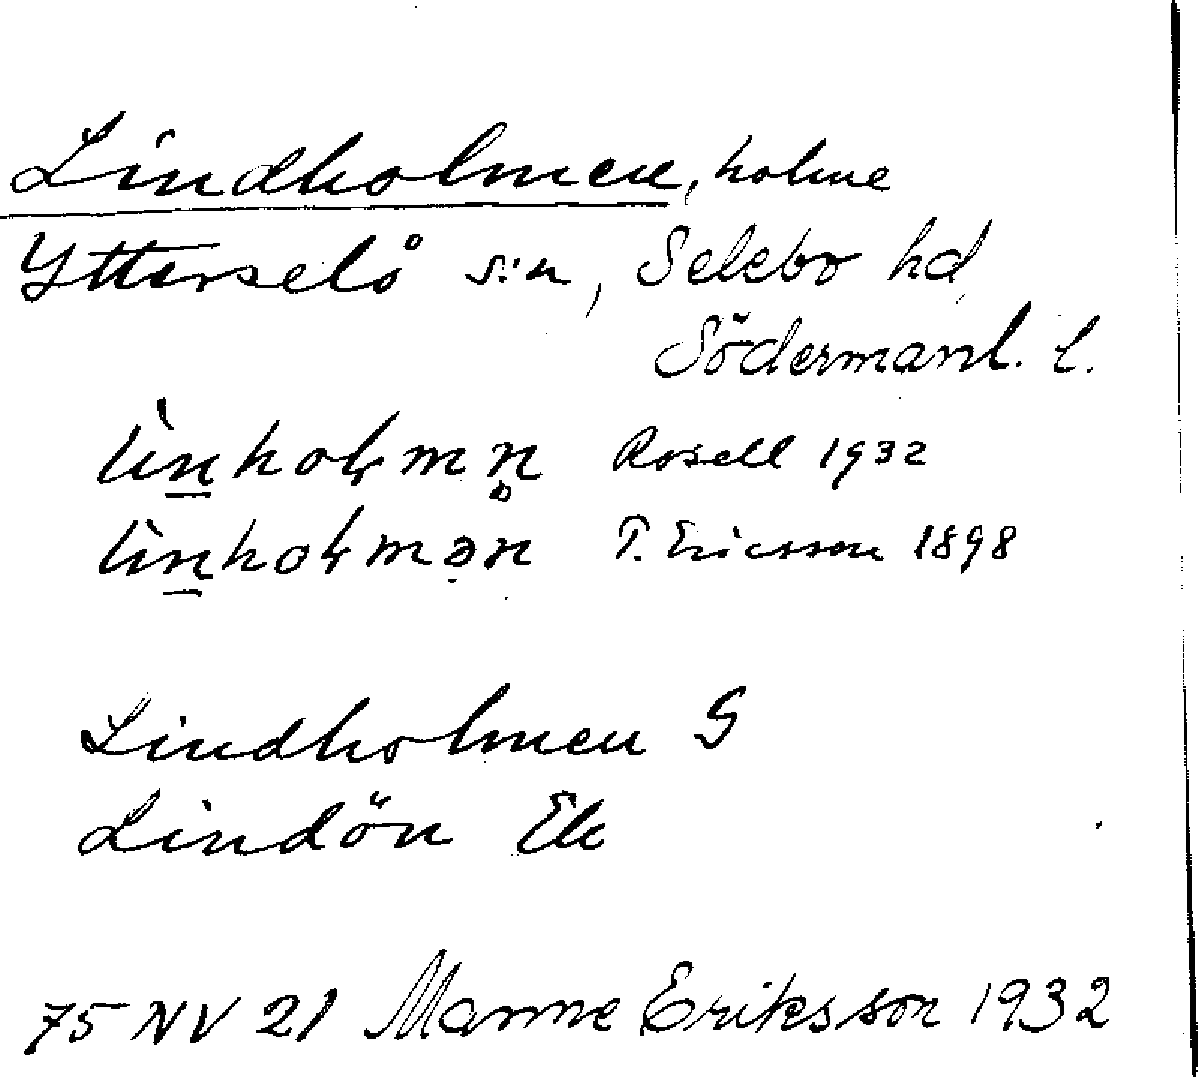 Lindholmen, holme
Ytterselö s:n, Selebo hd
Södermanl. l.
Rosell 1932
T. Ericsson 1898
Lindholmen G
Lindön Ek
75 NV 21 Manne Eriksson 1932